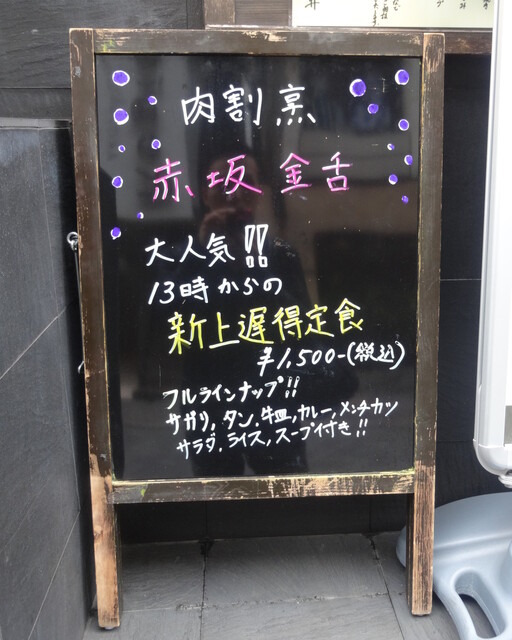 肉割烹
赤坂 金舌
大人気!!
13時からの
新上遅得定食
¥1,500-(税込)
フルラインナップ!!
サガリ,タン,牛皿,カレー,メンチカツ
サラダ,ライス,スープ付き!!